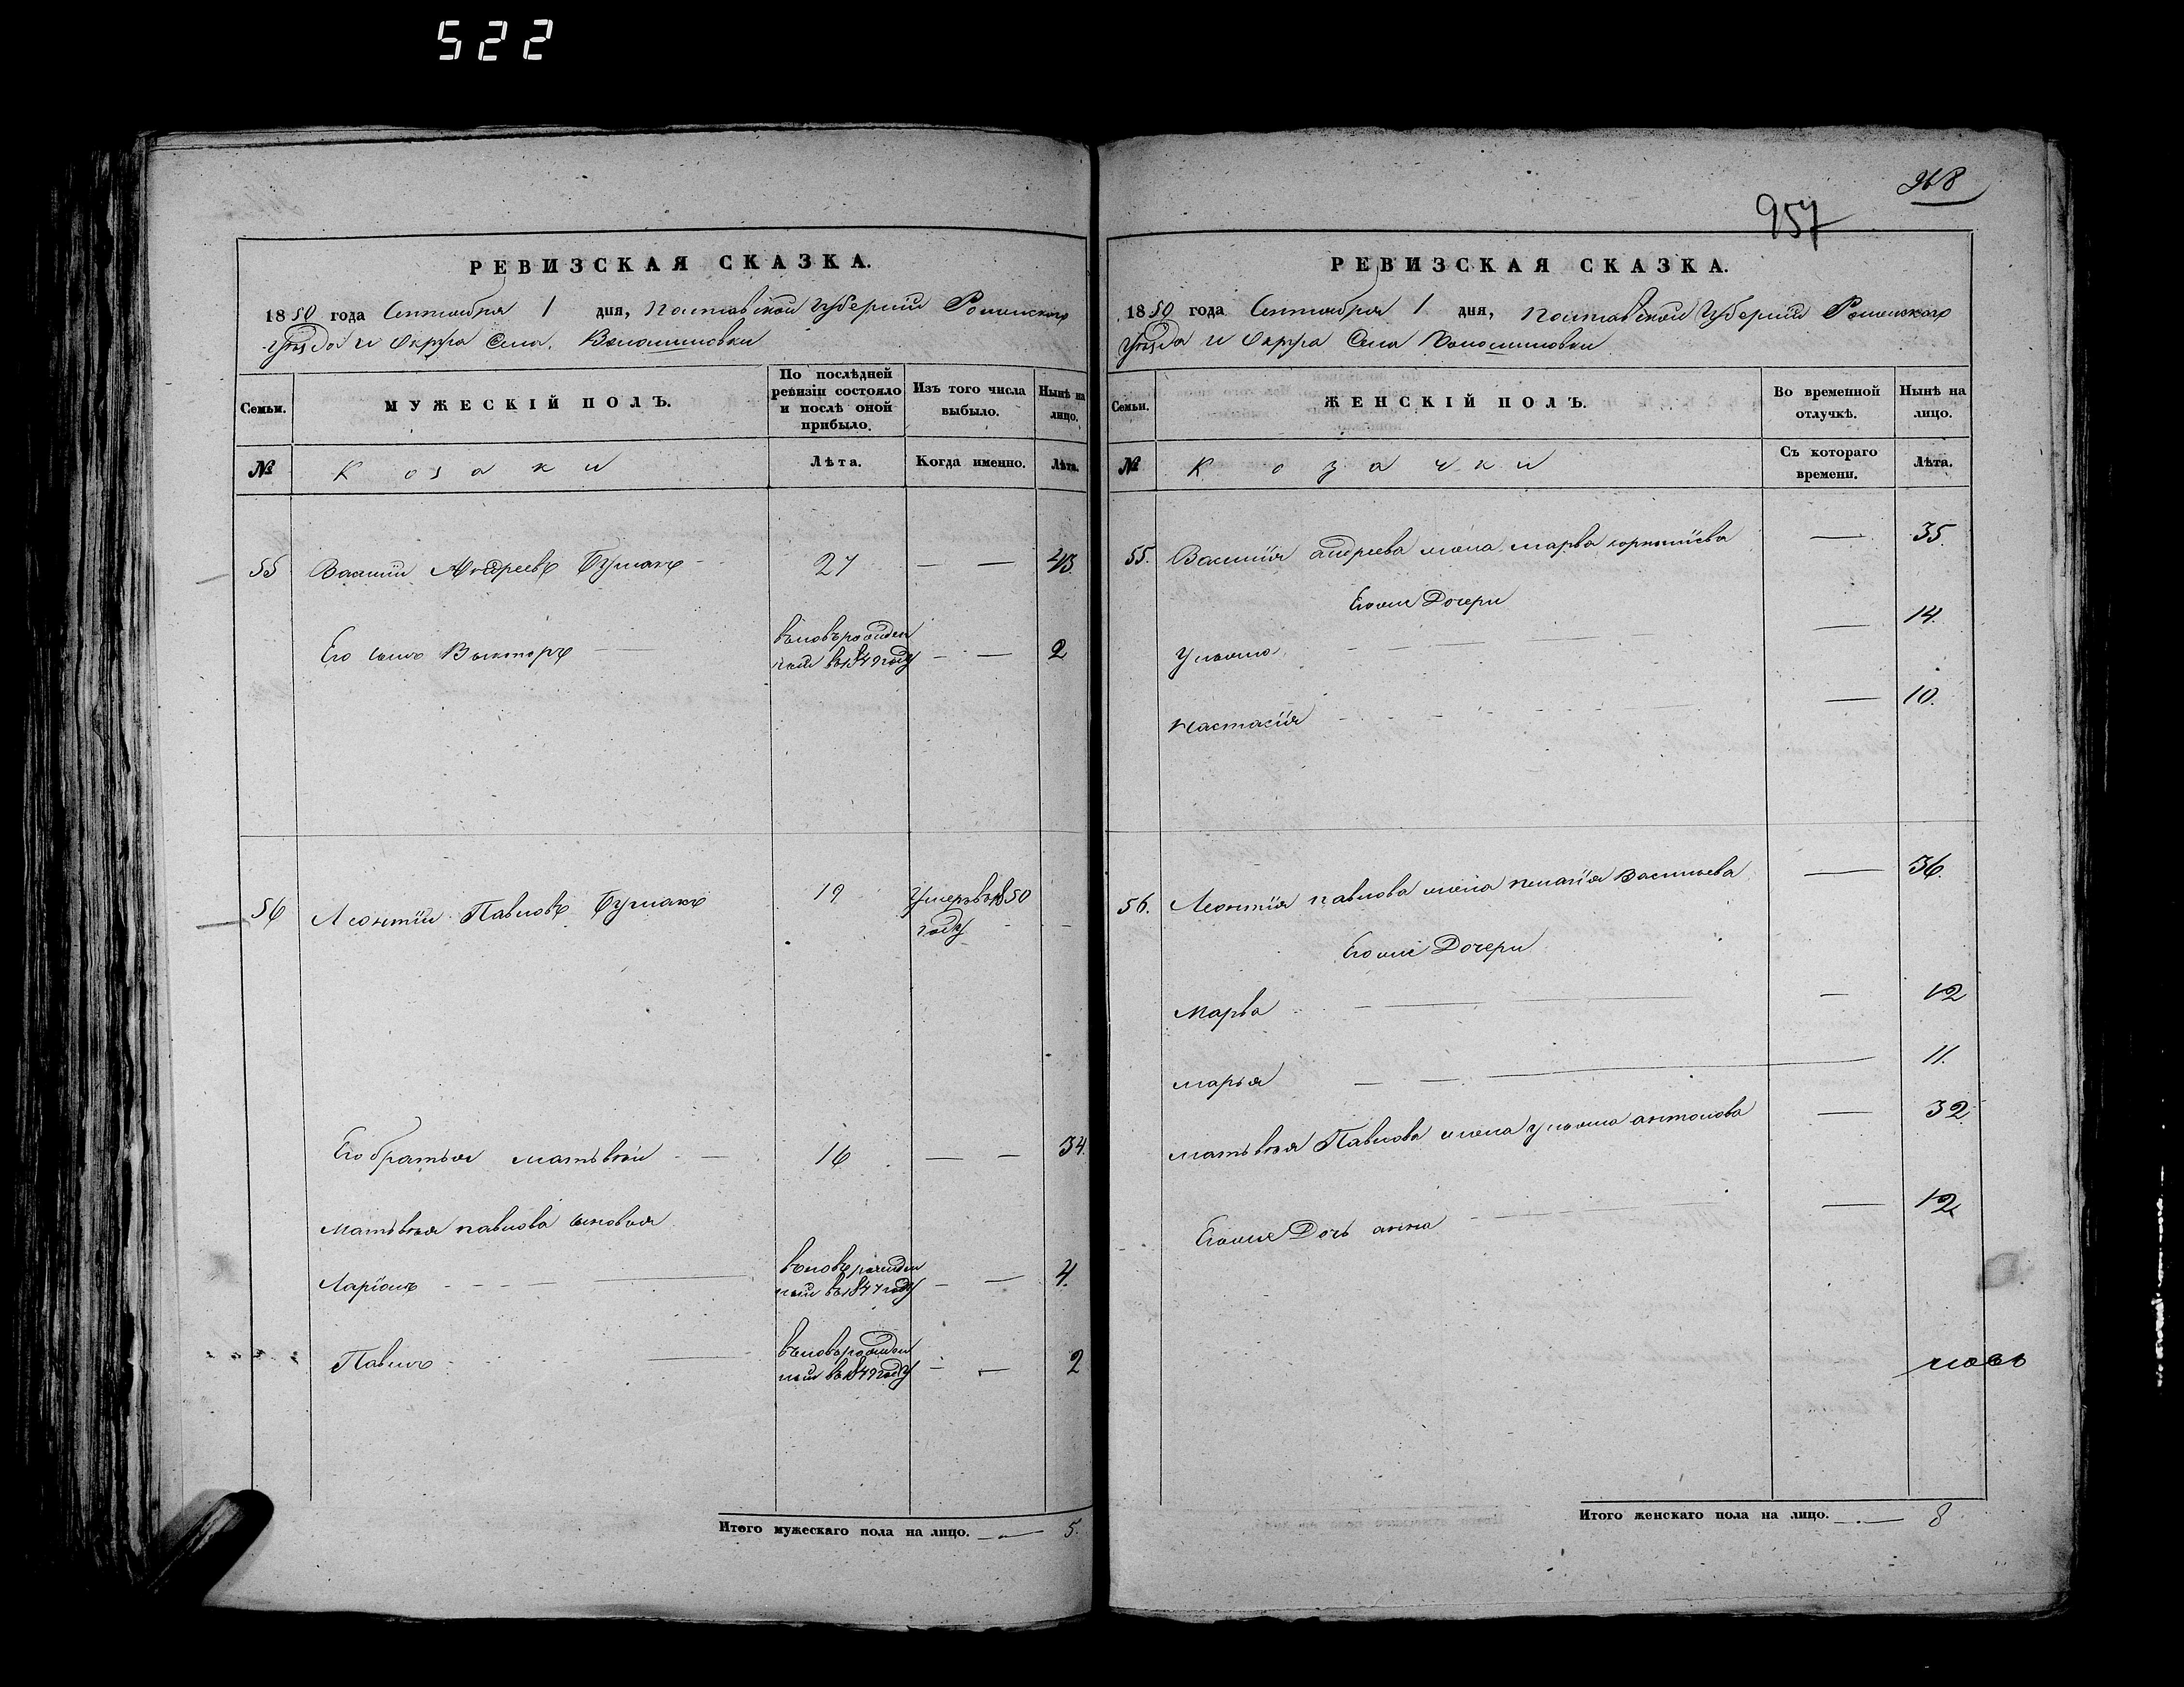 522
РЕВИЗСКАЯ СКАЗКА.
1850 года Сентября 1 дня, Полтавской Губернии Роменского
Уѣзда и Округа Села Волошиновки
Семьи.
МУЖЕСКІЙ ПОЛЪ.
По послѣдней ревизіи состояло и послѣ оной прибыло.
Изъ того числа выбыло.
Нынѣ на лицо.
№
Козаки
Лѣта.
Когда именно.
Лѣта.
55 Василій Андреевъ Бутакъ 27 — — 43.
Его сынъ Викторъ вновьрожден
ный въ 1849 году — — 2
56 Леонтій Павловъ Бутакъ 19 Умеръ въ 1850
году
Его братья Матьвѣй 16 — — 34.
Матьвѣя Павлова сыновья
Ларіонъ вновьрожден
ный въ 1847 году — — 4.
Павелъ вновьрожден
ный въ 1849 году — — 2
Итого мужескаго пола на лицо. 5.
268
957
РЕВИЗСКАЯ СКАЗКА.
1850 года Сентября 1 дня, Полтавской Губерніи Роменского
Уѣзда и Округа Села Волошиновки
Семьи.
ЖЕНСКІЙ ПОЛЪ.
Во временной отлучкѣ.
Нынѣ на лицо.
№
Козачки
Съ котораго времени.
Лѣта.
55. Василія Андреева жена Марва Корнѣіева — 35.
Егоже Дочери
Ульяна — 14.
Настасія — 10.
56. Леонтія Павлова жена Пелагія Васильева — 36.
Егоже Дочери
Марва — 12
Марья — 11.
Матьвѣя Павлова жена Ульяна Антонова — 32.
Егоже Дочь Анна — 12
Итого женскаго пола на лицо. 8